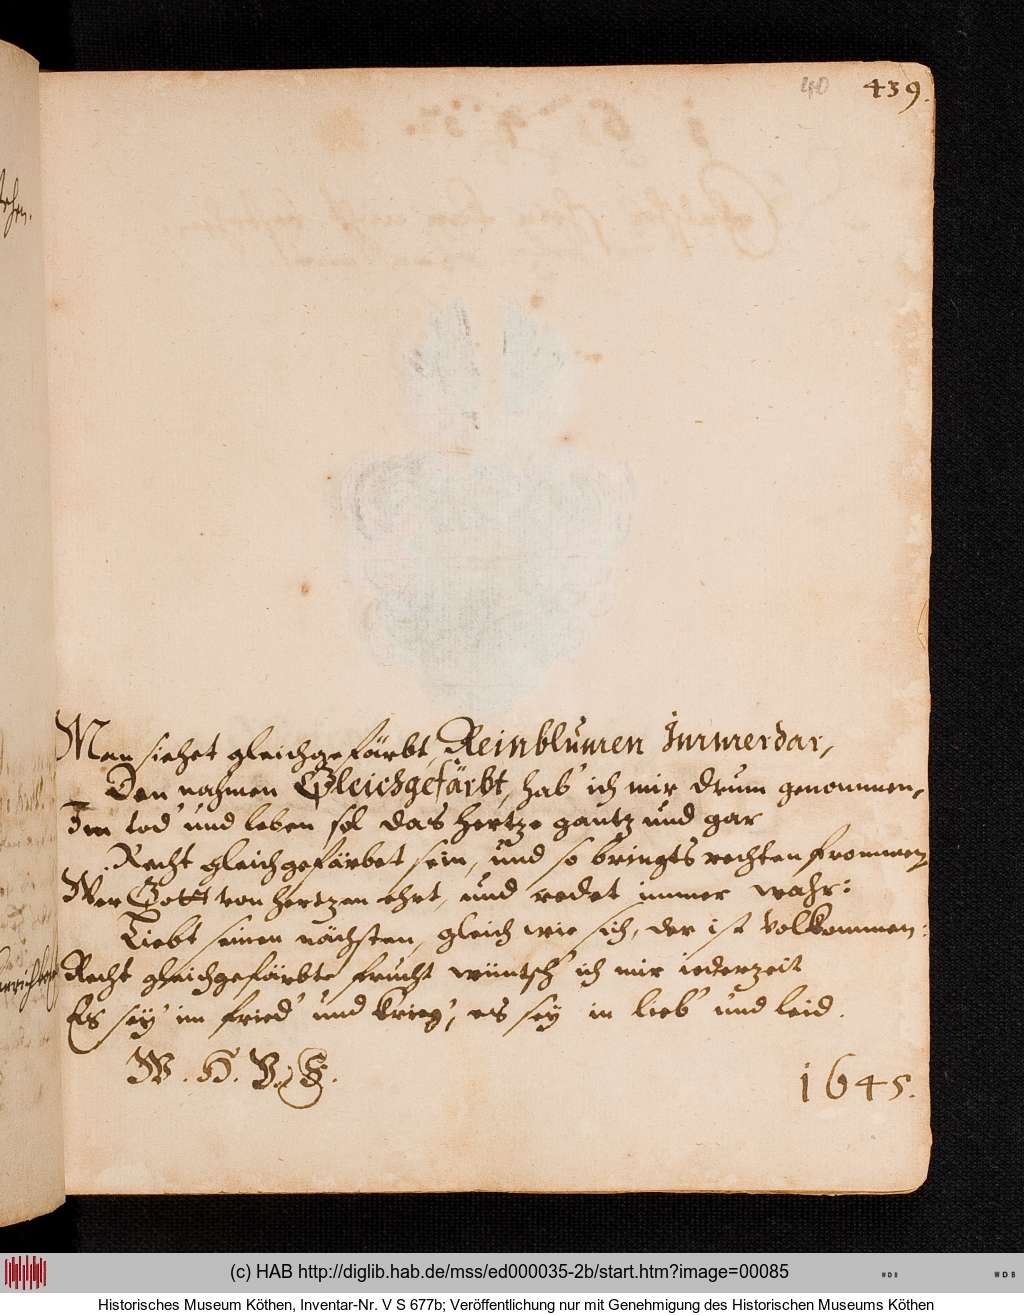 40 439.
Man siehet gleichgefärbt, Reinblumen Immerdar,
Den nahmen Gleichgefärbt, hab' ich mir drum genommen,
Im tod' und leben sol das hertze gantz und gar
Recht gleichgefärbet sein, und so bringts rechten frommen,
Wer Gott von hertzen ehrt, und redet immer wahr:
Liebt seinen nächsten, gleich wie sich, der ist volkommen:
Recht gleichgefärbte frucht wüntsch' ich mir iederzeit
Es sey' im fried' und krieg', es sey in lieb' und leid.
W. H. V. E.
1645.
(c) HAB http://diglib.hab.de/mss/ed000035-2b/start.htm?image=00085
WDB WDB
Historisches Museum Köthen, Inventar-Nr. V S 677b; Veröffentlichung nur mit Genehmigung des Historischen Museums Köthen